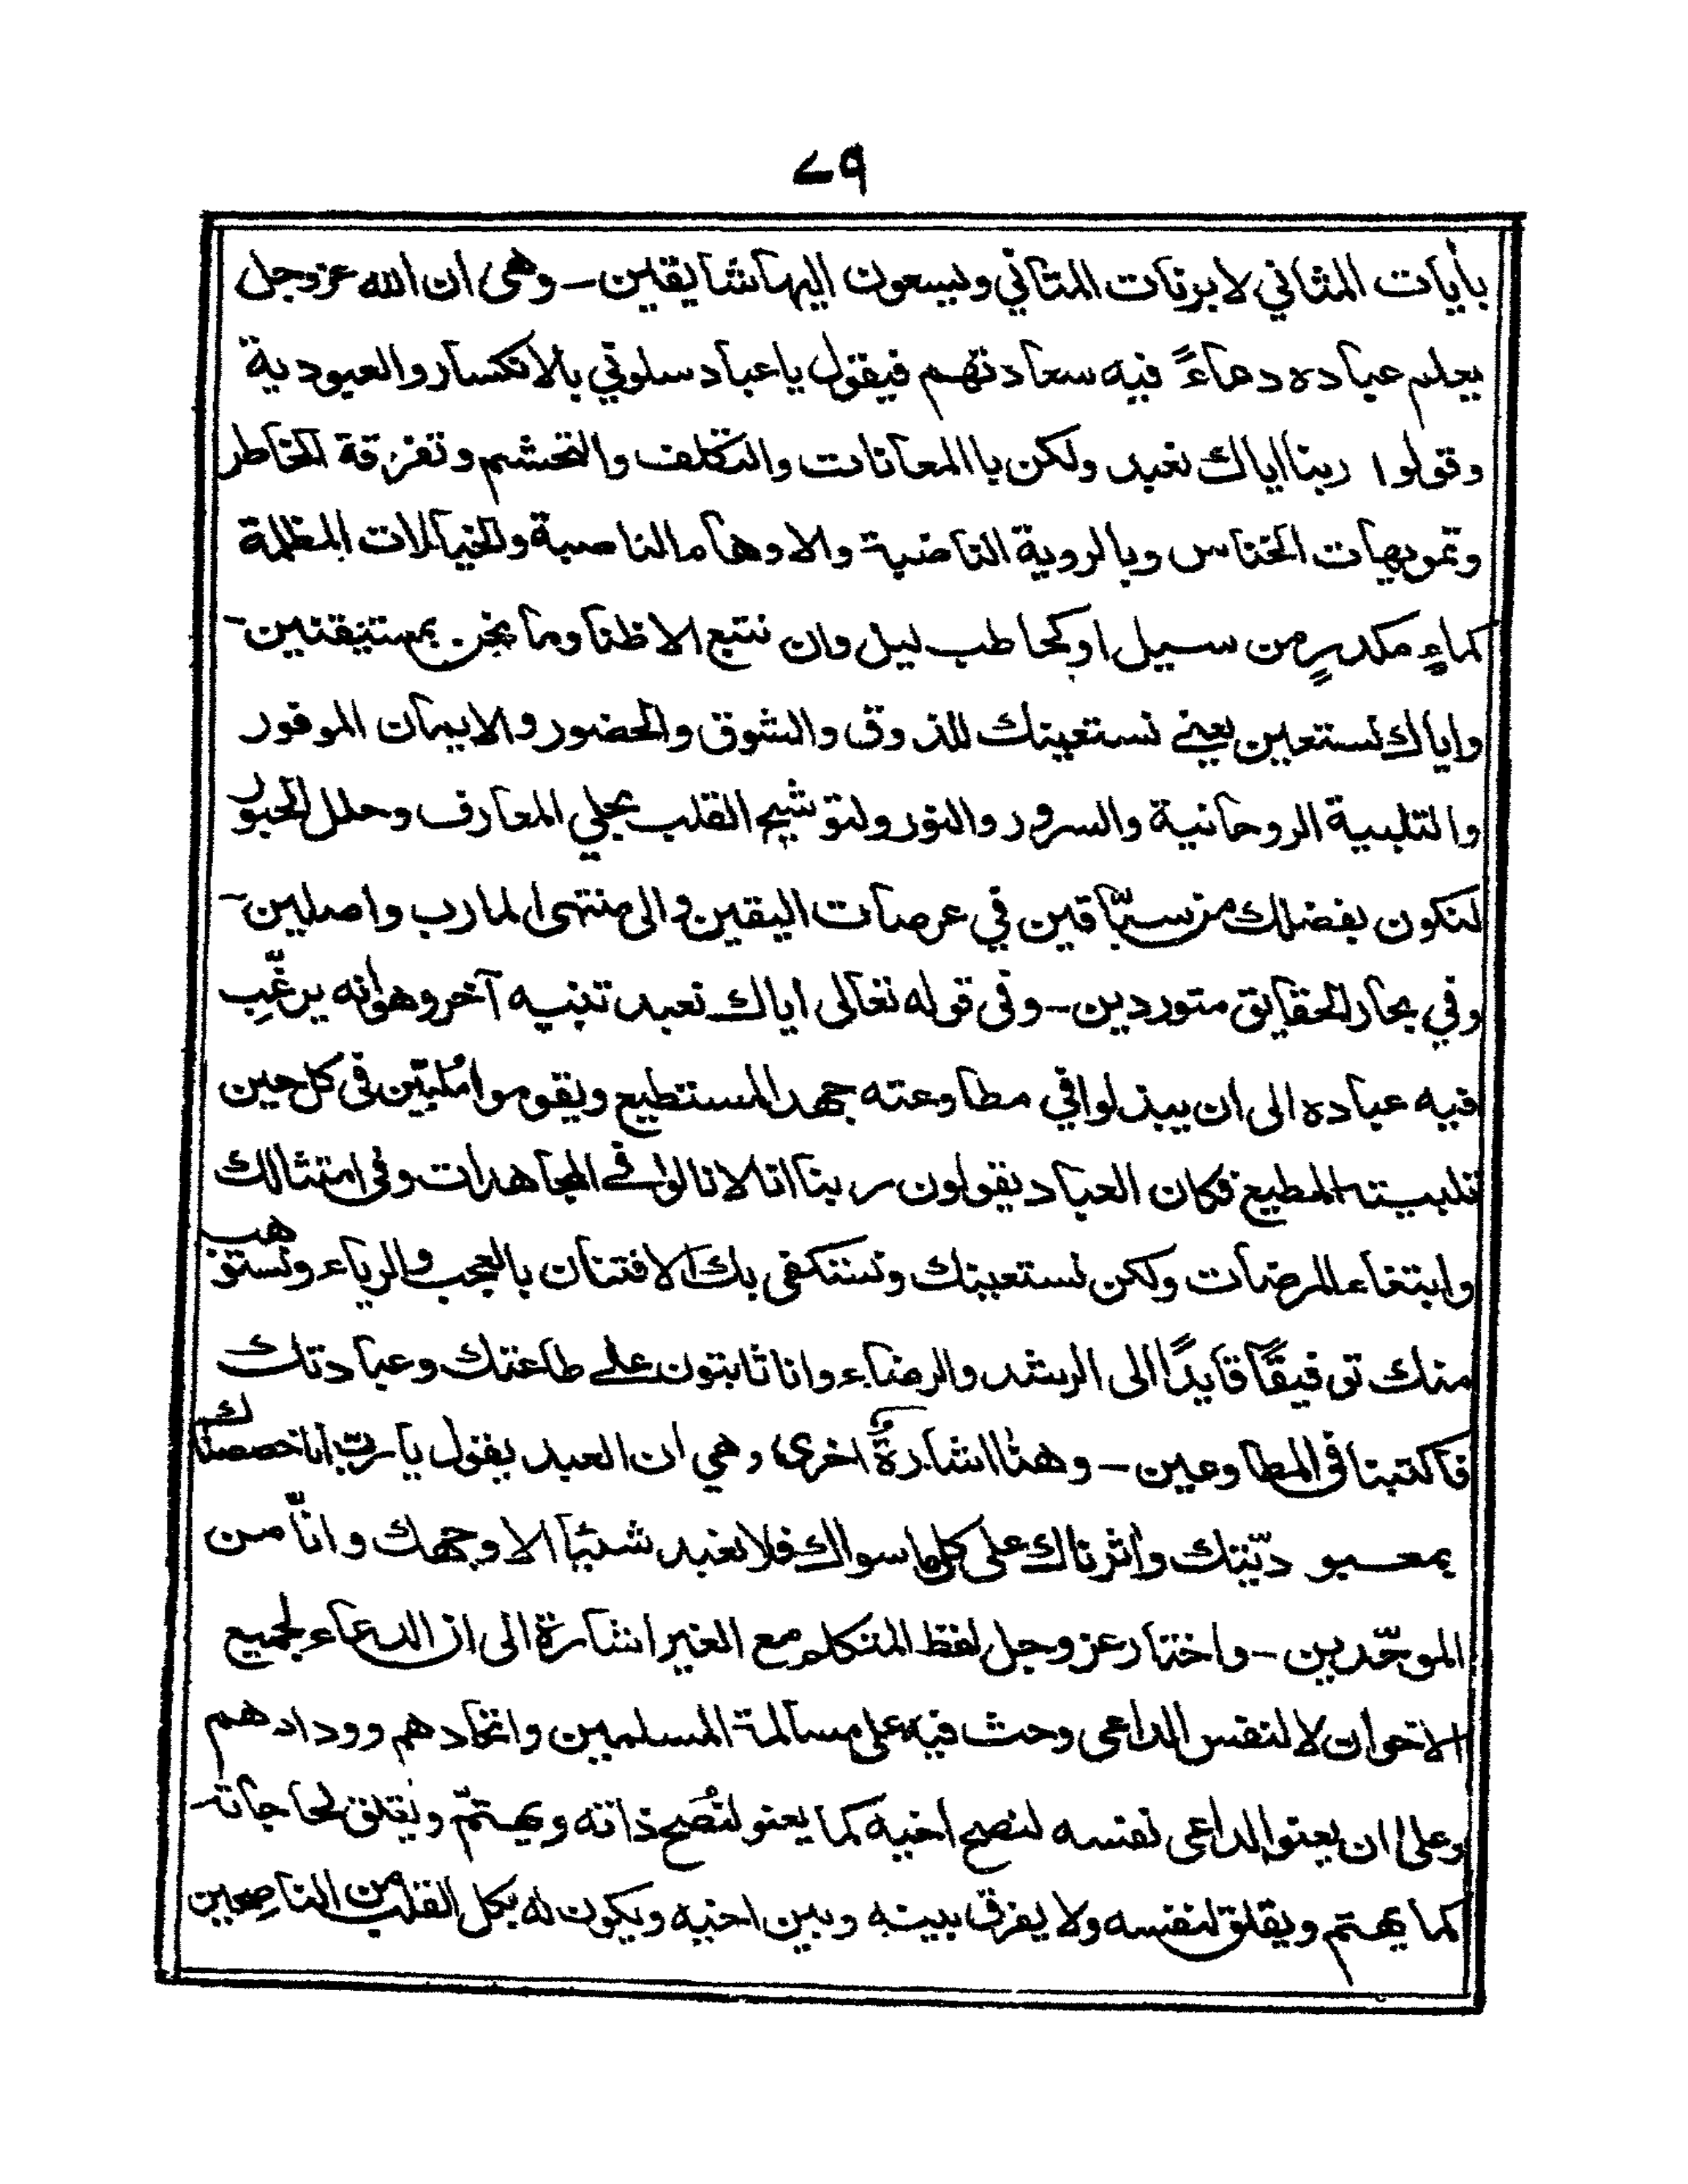 ٧٩
بأيات المثاني لا برنات المثاني ويسعون اليها شايقين – وهى ان الله عزوجل
يعلم عباده دعاءً فيه سعادتهم فيقول يا عباد سلوني بالانكسار والعبودية
وقولوا ربنا اياك نعبد ولكن بالمعانات والتكلف والتحشم وتفرقة الخاطر
وتمويهات الخناس وبالروية الناضبة والاوهام الناصبة والخيالات المظلمة
كماءٍ مكدرٍ من سيل او كحاطب ليل وان نتبع الا ظنا وما نحن بمستيقنين –
واياك نستعين يعني نستعينك للذوق والشوق والحضور والايمان الموفور
والتلبية الروحانية والسرور والنور ولتوشيح القلب بحلي المعارف وحلل الحبور
لنكون بفضلك من سبّاقين في عرصات اليقين والى منتهى المارب واصلين –
وفي بحار الحقايق متوردين – وفى قوله تعالى اياك نعبد تنبيه آخر وهو انه يرغّب
فيه عباده الى ان يبذلوا في مطاوعته جهد المستطيع ويقوموا مُلبّين فى كل حين
تلبية المطيع فكان العباد يقولون ربنا انا لا نالوا في المجاهدات وفى امتثالك
وابتغاء المرضات ولكن نستعينك ونستكفى بك الافتنان بالعجب والرياء ونستوهب
منك توفيقًا قايدًا الى الرشد والرضاء وانا ثابتون على طاعتك وعبادتك
فاكتبنا فى المطاوعين – وهنا اشارةٌ اخرى وهي ان العبد يقول يا رب انا خصصناك
بمعبوديّتك واثرناك على كل ما سواك فلا نعبد شيئا الا وجهك وانّا من
الموحّدين – واختار عزوجل لفظ المتكلم مع الغير اشارة الى ان الدعاء لجميع
الاخوان لا لنفس الداعى وحث فيه على مسالمة المسلمين واتحادهم وودادهم
وعلى ان يعنو الداعى نفسه لنصح اخيه كما يعنو لنُصح ذاته ويهتمّ ويقلق لحاجاته
كما يهتم ويقلق لنفسه ولا يفرق بينه وبين اخيه ويكون له بكل القلب من الناصحين